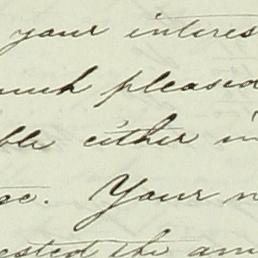 your interes
much pleased
ble either in
se. Your n
ested the am